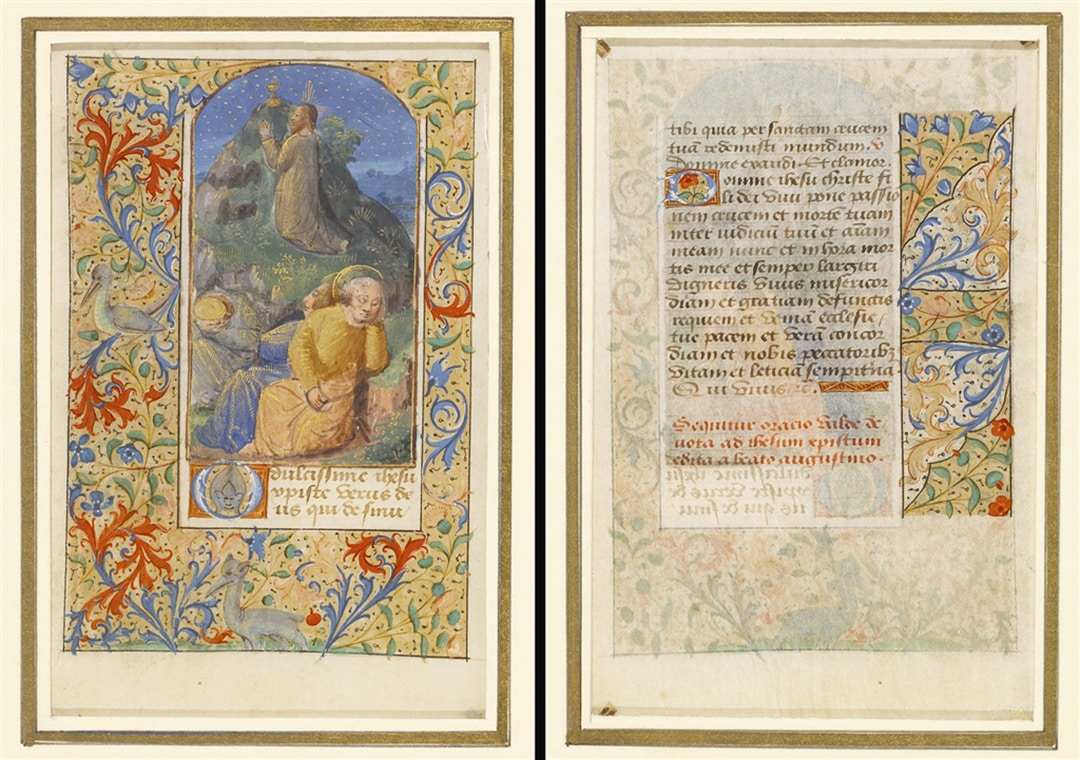 dulcissime ihesu
xpiste verus de
us qui de sinu
tibi quia per sanctam crucem
tua redemisti mundum. v
Domine exaudi. Et clamor.
Domine ihesu christe fi
li dei vivi pone passio
nem crucem et morte tuam
inter iudiciū tuū et aīam
meam nunc et in hora mor
tis mee et semper largiri
digneris vivis misericor
diam et gratiam defunctis
requiem et veniā ecclesie
tue pacem et verā concor
diam et nobis peccatoribz
vitam et leticiā sempitnā
Q ui vivis rc.
Sequitur oracio valde de
vota ad ihesum xpistum
edita a beato augustino.